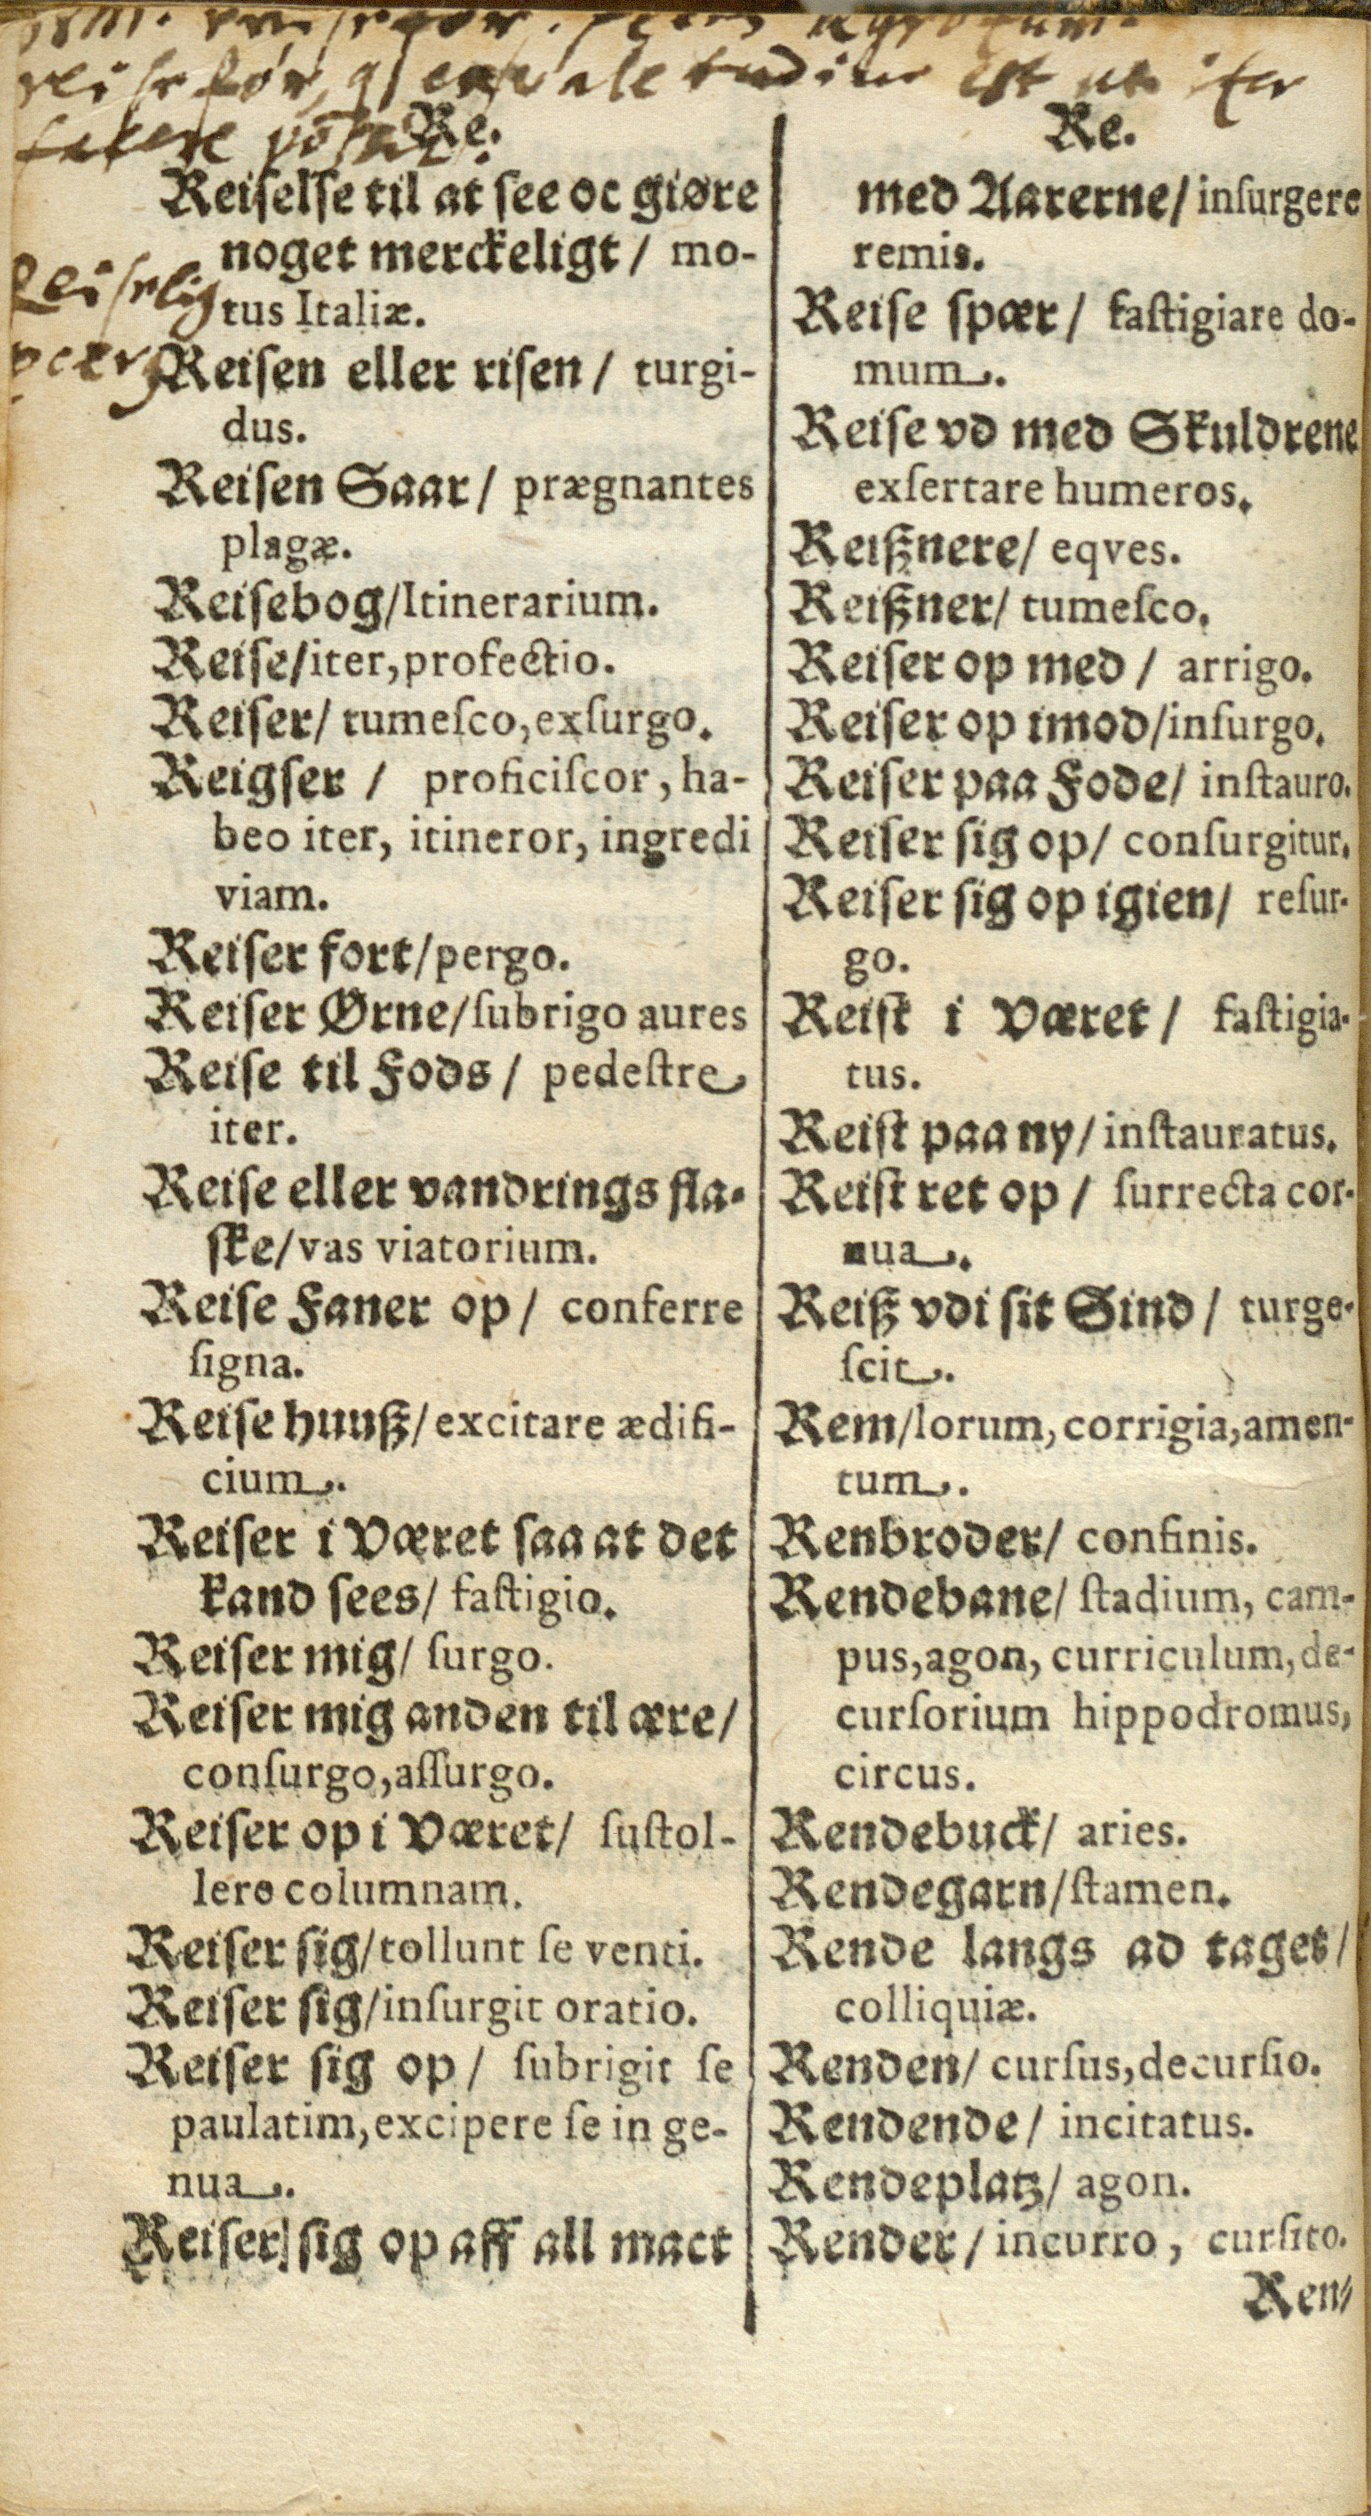 est ut iter
Re.
Reiſelſe til at ſee oc giøre
noget merckeligt / mo-
tus Italiæ.
Reiſen eller riſen / turgi-
dus.
Reiſen Saar / prægnantes
plagæ.
Reiſebog/Itinerarium.
Reiſe/iter,profectio.
Reiſer/ tumeſco,exſurgo.
Reigſer / proficiſcor, ha-
beo iter, itineror, ingredi
viam.
Reiſer fort/pergo.
Reiſer Ørne/ſubrigo aures
Reiſe til Fods / pedeſtre
iter.
Reiſe eller vandrings fla-
ſke/vas viatorium.
Reiſe Faner op / conferre
ſigna.
Reiſe huuß/excitare ædifi-
cium.
Reiſer i Været ſaa at det
kand ſees/ faſtigio.
Reiſer mig/ ſurgo.
Reiſer mig anden til ære/
conſurgo,aſſurgo.
Reiſer op i Været/ ſuſtol-
lere columnam.
Reiſer ſig/tollunt ſe venti.
Reiſer ſig/inſurgit oratio.
Reiſer ſig op / ſubrigit ſe
paulatim,excipere ſe in ge-
nua.
Reiſer ſig op aff all mact
Re.
med Aarerne/ inſurgere
remis.
Reiſe ſpær / faſtigiare do-
mum.
Reiſe vd med Skuldrene
exſertare humeros.
Reißnere/ eqves.
Reißner/ tumeſco.
Reiſer op med / arrigo.
Reiſer op imod/inſurgo.
Reiſer paa Fode/ inſtauro.
Reiſer ſig op/ conſurgitur.
Reiſer ſig op igien/ reſur-
go.
Reiſt i Været / faſtigia-
tus.
Reiſt paa ny/ inſtauratus.
Reiſt ret op / ſurrecta cor-
nua.
Reiß vdi ſit Sind / turge-
ſcit.
Rem/lorum, corrigia,amen-
tum.
Renbroder/ confinis.
Rendebane/ ſtadium, cam-
pus,agon, curriculum, de-
curſorium hippodromus,
circus.
Rendebuck/ aries.
Rendegarn/ſtamen.
Rende langs ad taget/
colliquiæ.
Renden/ curſus,decurſio.
Rendende/ incitatus.
Rendeplatz/ agon.
Render / incurro, curſito.
Ren-